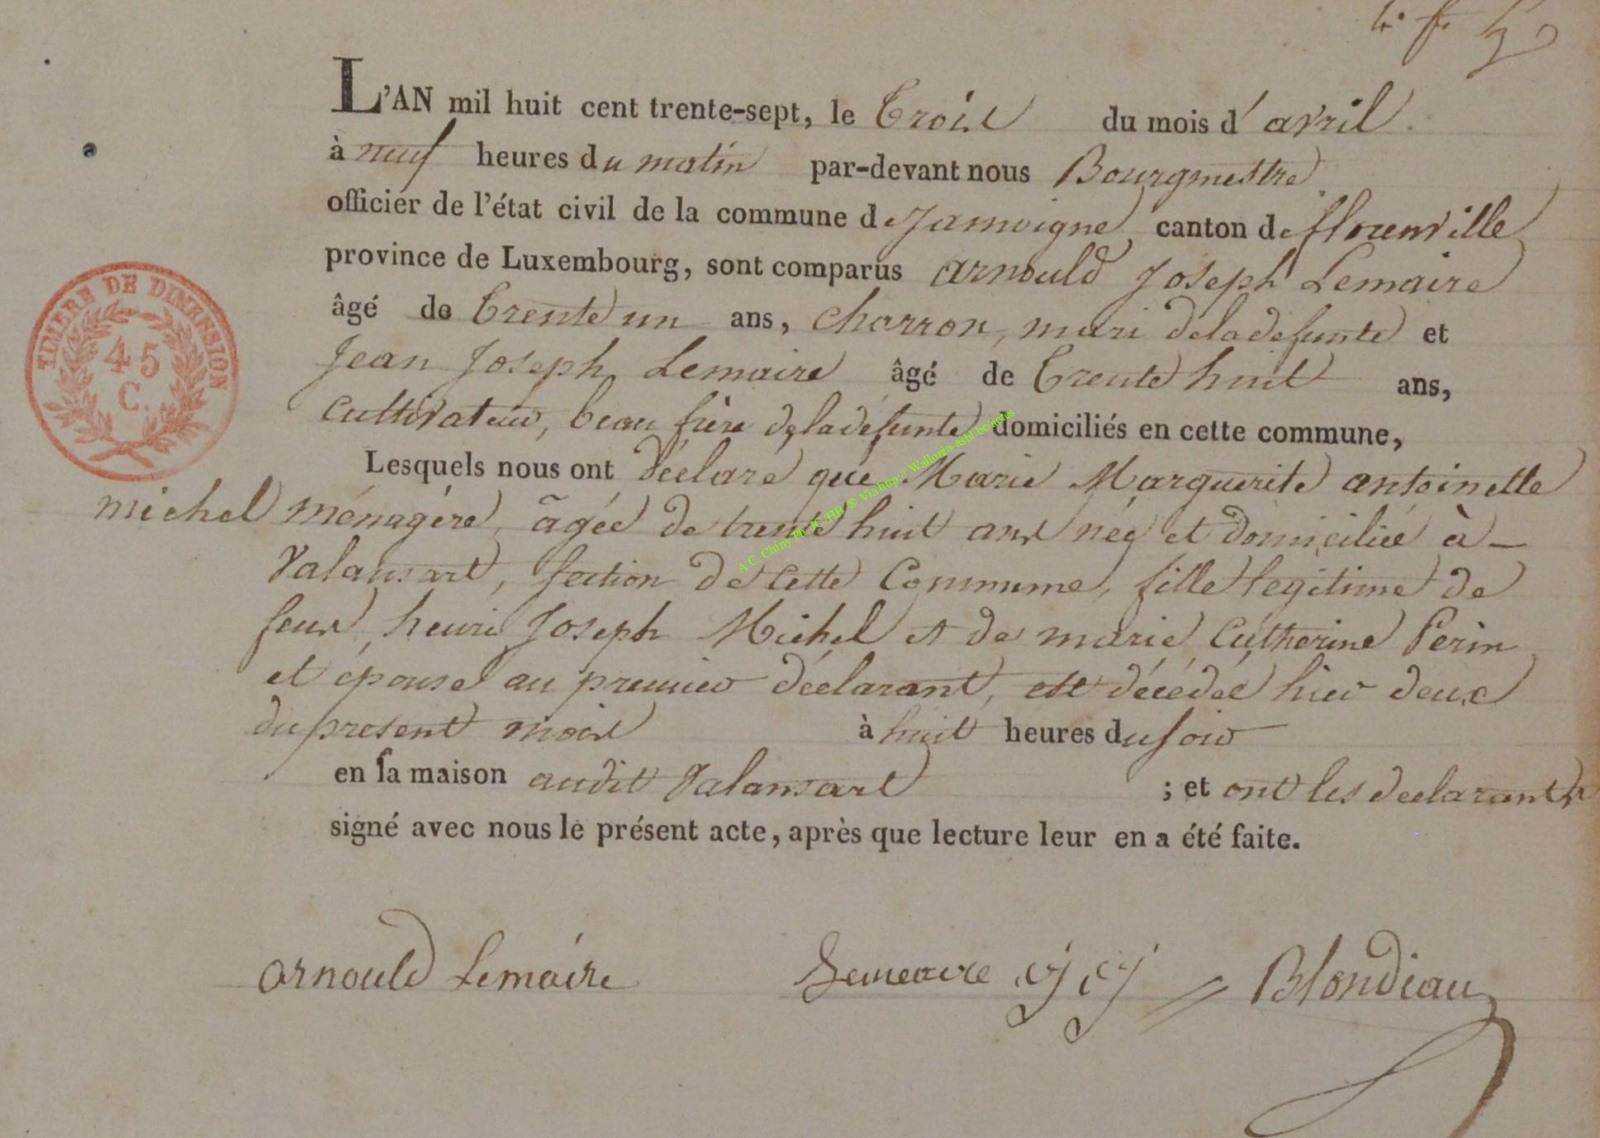 L'AN mil huit cent trente-sept, le Trois du mois d'avril
à neuf heures du matin par-devant nous Bourgmestre
officier de l'état civil de la commune de Jamoigne canton de florenville
province de Luxembourg, sont comparus arnould Joseph Lemaire
âgé de trente un ans, charron, mari de la défunte et
Jean Joseph Lemaire âgé de trente huit ans,
cultivateur, beau frère de la défunte domiciliés en cette commune,
Lesquels nous ont déclaré que Marie Marguerite antoinette
michel ménagère, âgée de trente huit ans née et domiciliée à
Valansart, section de cette Commune, fille legitime de
feux henri Joseph Michel et de marie Catherine Perin
et épouse au premier déclarant, est décédée hier deux
du present mois à huit heures du soir
en sa maison audit Valansart ; et ont les declarants
signé avec nous le présent acte, après que lecture leur en a été faite.
arnould Lemaire Lemaire j j Blondiau
TIMBRE DE DIMENSION
45
C.